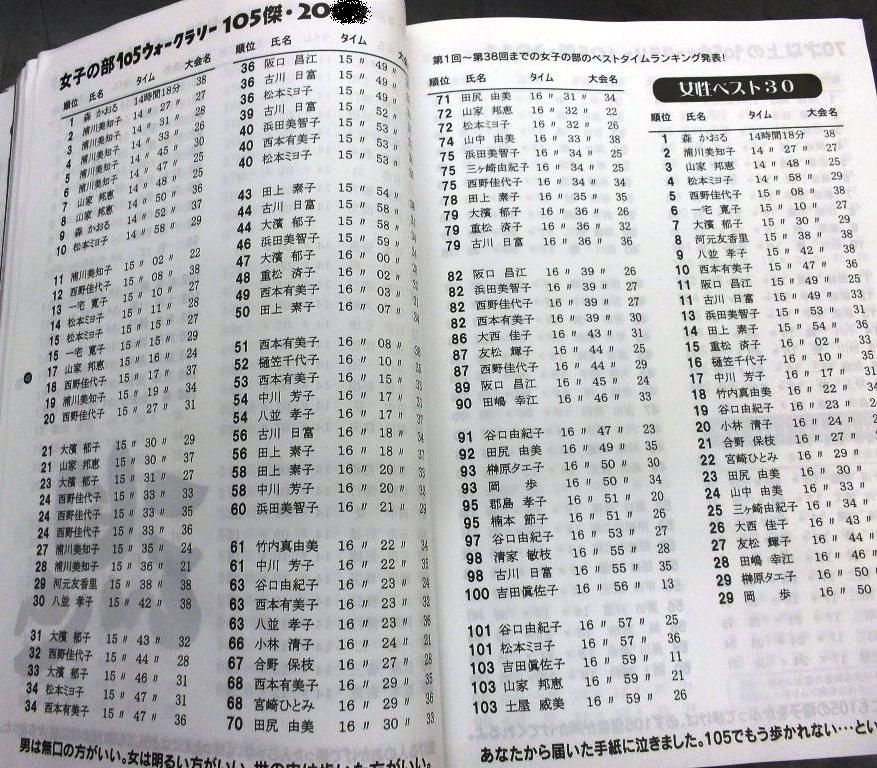 女子の部105ウォークラリー105傑・20
順位 氏名 タイム 大会名
1 森 かおる 14時間18分 38
2 浦川美知子 14 〃 27 〃 27
3 浦川美知子 14 〃 31 〃 28
4 浦川美知子 14 〃 33 〃 26
5 浦川美知子 14 〃 45 〃 30
6 浦川美知子 14 〃 47 〃 25
7 山家 邦恵 14 〃 48 〃 25
8 山家 邦恵 14 〃 50 〃 36
9 森 かおる 14 〃 52 〃 37
10 松本ミヨ子 14 〃 58 〃 29
11 浦川美知子 15 〃 02 〃 22
12 西野佳代子 15 〃 08 〃 38
13 一宅 寛子 15 〃 10 〃 27
14 松本ミヨ子 15 〃 11 〃 28
15 松本ミヨ子 15 〃 15 〃 27
15 一宅 寛子 15 〃 15 〃 29
17 山家 邦恵 15 〃 16 〃 24
18 西野佳代子 15 〃 17 〃 37
19 浦川美知子 15 〃 19 〃 34
20 西野佳代子 15 〃 27 〃 31
21 大濱 郁子 15 〃 30 〃 29
21 山家 邦恵 15 〃 30 〃 37
23 大濱 郁子 15 〃 31 〃 27
24 西野佳代子 15 〃 33 〃 33
24 西野佳代子 15 〃 33 〃 35
24 西野佳代子 15 〃 33 〃 36
27 浦川美知子 15 〃 35 〃 24
28 浦川美知子 15 〃 36 〃 21
29 河元友香里 15 〃 38 〃 38
30 八並 孝子 15 〃 42 〃 38
31 大濱 郁子 15 〃 43 〃 32
32 西野佳代子 15 〃 44 〃 28
33 大濱 郁子 15 〃 46 〃 31
34 松本ミヨ子 15 〃 47 〃 31
34 西本有美子 15 〃 47 〃 36
順位 氏名 タイム 大
36 阪口 昌江 15 〃 49 〃
36 古川 日富 15 〃 49 〃
36 松本ミヨ子 15 〃 49 〃
39 古川 日富 15 〃 52 〃
40 浜田美智子 15 〃 53 〃
40 西野佳代子 15 〃 53 〃
40 松本ミヨ子 15 〃 53 〃
43 田上 素子 15 〃 54 〃
44 古川 日富 15 〃 58 〃
44 大濱 郁子 15 〃 58 〃
46 浜田美智子 15 〃 59 〃
47 大濱 郁子 16 〃 00 〃
48 重松 済子 16 〃 02 〃
49 西本有美子 16 〃 03 〃
50 田上 素子 16 〃 07 〃
51 西本有美子 16 〃 08 〃
52 樋笠千代子 16 〃 10 〃
53 西本有美子 16 〃 15 〃
54 中川 芳子 16 〃 17 〃
54 八並 孝子 16 〃 17 〃 37
56 古川 日富 16 〃 18 〃 34
56 田上 素子 16 〃 18 〃 37
58 田上 素子 16 〃 20 〃 33
58 中川 芳子 16 〃 20 〃
60 浜田美智子 16 〃 21 〃 29
61 竹内真由美 16 〃 22 〃 34
61 中川 芳子 16 〃 22 〃 35
63 谷口由紀子 16 〃 23 〃 24
63 西本有美子 16 〃 23 〃 32
63 八並 孝子 16 〃 23 〃 36
66 小林 清子 16 〃 24 〃 21
67 合野 保枝 16 〃 27 〃 28
68 西本有美子 16 〃 29 〃 35
68 宮崎ひとみ 16 〃 29 〃 36
70 田尻 由美 16 〃 30 〃 33
男は無口の方がいい。女は明るい方がいい。
第1回〜第38回までの女子の部のベストタイムランキング発表!
順位 氏名 タイム 大会名
71 田尻 由美 16 〃 31 〃 34
72 山家 邦恵 16 〃 32 〃 22
72 松本ミヨ子 16 〃 32 〃 26
74 山中 由美 16 〃 33 〃 38
75 浜田美智子 16 〃 34 〃 25
75 三ヶ崎由紀子 16 〃 34 〃 25
75 西野佳代子 16 〃 34 〃 34
78 田上 素子 16 〃 35 〃 35
79 大濱 郁子 16 〃 36 〃 26
79 重松 済子 16 〃 36 〃 32
79 古川 日富 16 〃 36 〃 36
82 阪口 昌江 16 〃 39 〃 26
82 浜田美智子 16 〃 39 〃 27
82 西野佳代子 16 〃 39 〃 27
82 西本有美子 16 〃 39 〃 30
86 大西 佳子 16 〃 43 〃 31
87 友松 輝子 16 〃 44 〃 25
87 西野佳代子 16 〃 44 〃 29
89 阪口 昌江 16 〃 45 〃 24
90 田嶋 幸江 16 〃 46 〃 33
91 谷口由紀子 16 〃 47 〃 23
92 田尻 由美 16 〃 49 〃 35
93 榊原タエ子 16 〃 50 〃 30
93 岡 歩 16 〃 50 〃 34
95 郡島 孝子 16 〃 51 〃 20
95 楠本 節子 16 〃 51 〃 26
97 谷口由紀子 16 〃 53 〃 27
98 清家 敏枝 16 〃 55 〃 28
98 古川 日富 16 〃 55 〃 35
100 吉田眞佐子 16 〃 56 〃 13
101 谷口由紀子 16 〃 57 〃 25
101 松本ミヨ子 16 〃 57 〃 36
103 吉田眞佐子 16 〃 59 〃 11
103 山家 邦恵 16 〃 59 〃 21
103 土屋 威美 16 〃 59 〃 26
女性ベスト30
順位 氏名 タイム 大会名
1 森 かおる 14時間18分 38
2 浦川美知子 14 〃 27 〃 27
3 山家 邦恵 14 〃 48 〃 25
4 松本ミヨ子 14 〃 58 〃 29
5 西野佳代子 15 〃 08 〃 38
6 一宅 寛子 15 〃 10 〃 27
7 大濱 郁子 15 〃 30 〃 29
8 河元友香里 15 〃 38 〃 38
9 八並 孝子 15 〃 42 〃 38
10 西本有美子 15 〃 47 〃 36
11 阪口 昌江 15 〃 49 〃 29
11 古川 日富 15 〃 49 〃 33
13 浜田美智子 15 〃 53 〃 31
14 田上 素子 15 〃 54 〃 36
15 重松 済子 16 〃 02 〃 33
16 樋笠千代子 16 〃 10 〃 35
17 中川 芳子 16 〃 17 〃 31
18 竹内真由美 16 〃 22 〃 34
19 谷口由紀子 16 〃 23 〃 2
20 小林 清子 16 〃 24 〃 2
21 合野 保枝 16 〃 27 〃
22 宮崎ひとみ 16 〃 29 〃
23 田尻 由美 16 〃 30 〃
24 山中 由美 16 〃 33 〃
25 三ヶ崎由紀子 16 〃 34 〃
26 大西 佳子 16 〃 43 〃
27 友松 輝子 16 〃 44 〃
28 田嶋 幸江 16 〃 46 〃
29 榊原タエ子 16 〃 50
29 岡 歩 16 〃 50
あなたから届いた手紙に泣きました。105でもう歩かれない…とい